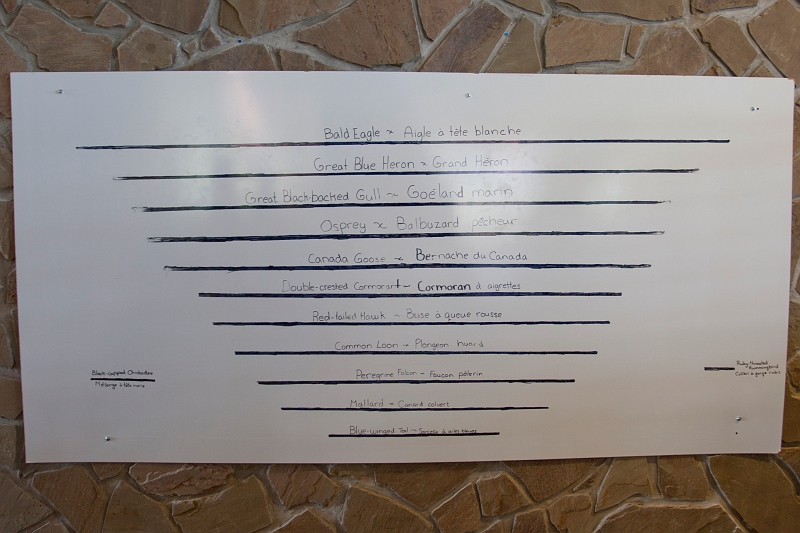 Bald Eagle ~ Aigle à tête blanche
Great Blue Heron ~ Grand Héron
Great Black-backed Gull ~ Goéland marin
Osprey ~ Balbuzard pêcheur
Canada Goose ~ Bernache du Canada
Double-crested Cormorant ~ Cormoran à aigrettes
Red-tailed Hawk ~ Buse à queue rousse
Common Loon ~ Plongeon huard
Peregrine Falcon ~ Faucon pèlerin
Mallard ~ Canard colvert
Blue-winged Teal ~ Sarcelle à ailes bleues
Black-capped Chickadee
Mésange à tête noire
Ruby throated
Hummingbird
Colibri à gorge rubis